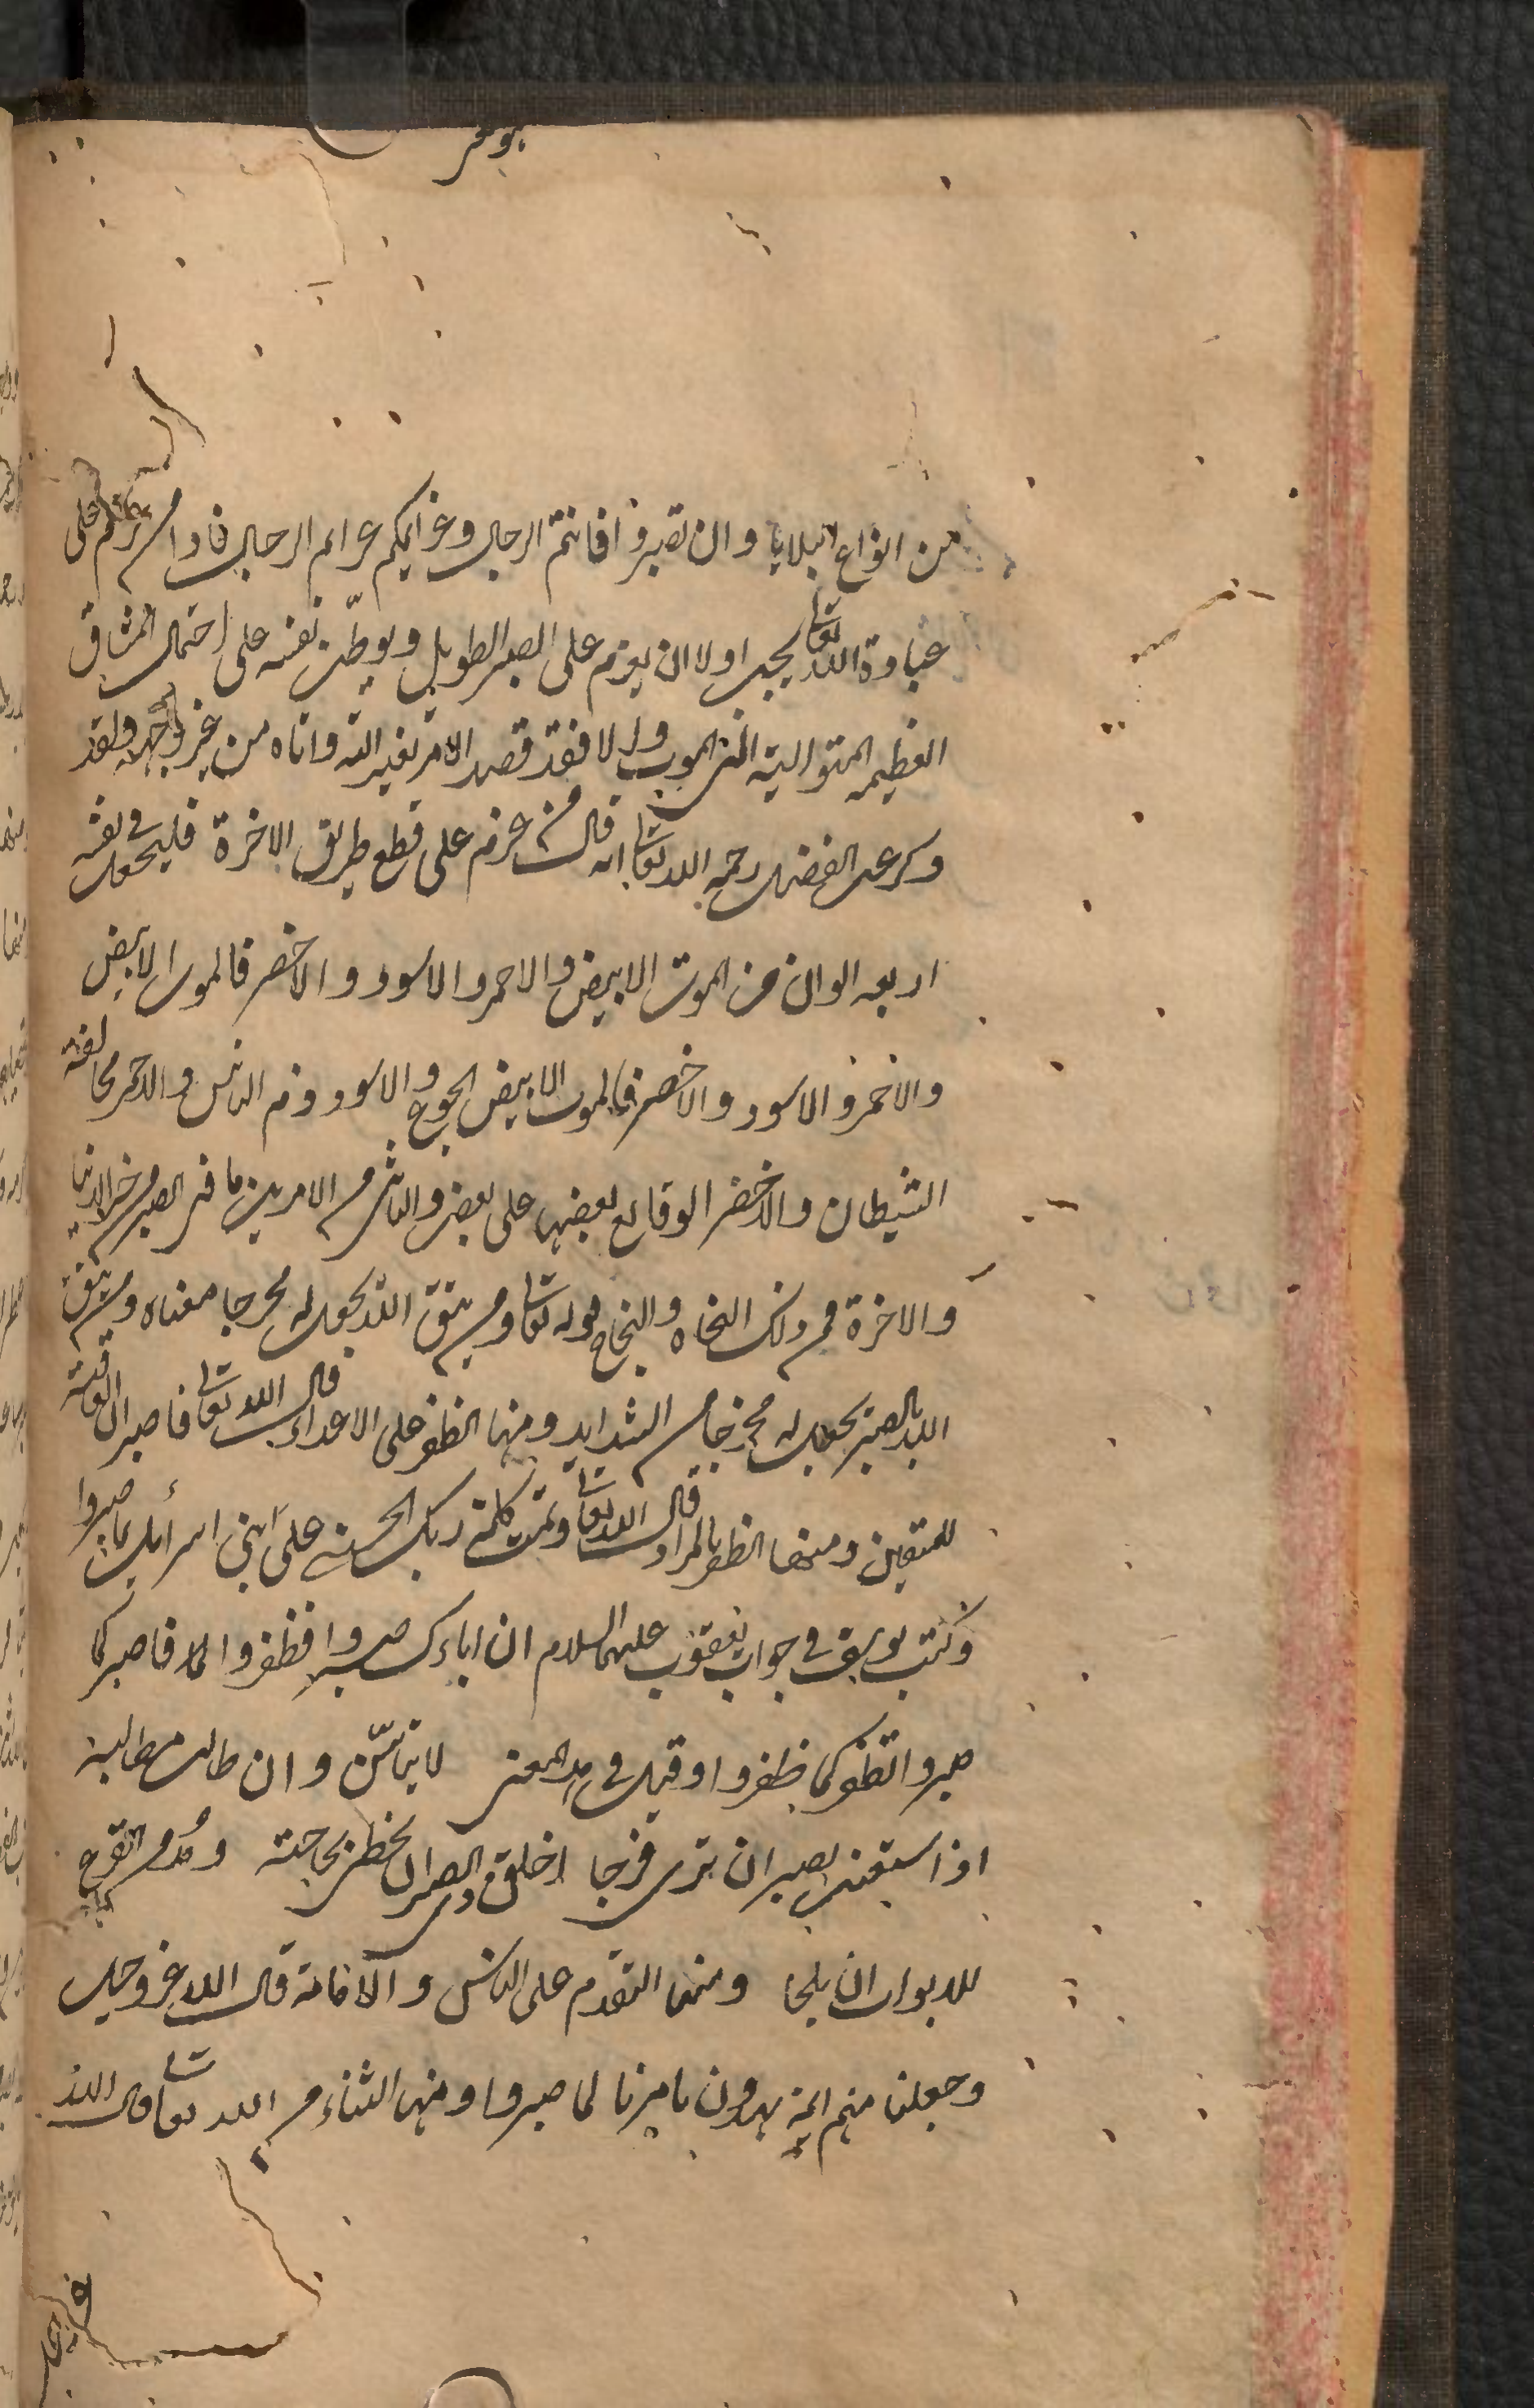 من انواع البلايا وان تصبروا فانتم الرجال وعزايمكم عزايم الرجال فاذا من عزم على
عبادة الله تعالى يجب اولا ان يعزم على الصبر الطويل ويوطّن نفسه على احتمال المشاق
العظيمه المتواليته الى الموت والا فقد قصد الامر بغير الته واتاه من غير وجهه ولقد
ذكر عن الفضيل رحمه الله تعالى انه قال من عزم على قطع طريق الاخرة فليجعل في نفسه
اربعه الوان من الموت الابيض والاحمر والاسود والاخضر فالموت الابيض
والاحمر والاسود والاخضر فالموت الابيض الجوع والاسود ذم الناس والاحمر مخالفة
الشيطان والاخضر الوقايع بعضها على بعض والثانى من الامرين ما فى الصبر من خير الدنيا
والاخرة فمن ذلك النجاه والنجاح قوله تعالى ومن يتق الله يجعل له مخرجا معناه ومن يتق
الله بالصبر يجعل له مخرجا من الشدايد ومنها الظفر على الاعداء قال الله تعالى فاصبر ان العاقبة
للمتقين ومنها الظفر بالمراد قال الله تعالى وتمت كلمة ربك الحسنى على بني اسرائيل بما صبروا
وكتب يوسف في جواب يعقوب عليهما السلام ان اباءك صبروا فظفروا فاصبر كما
صبروا تظفر كما ظفروا وقيل في هذا المعنى لا تيأسنّ وان طالت مطالبة
اذا استعنت بصبر ان ترى فرجا اخلق بذى الصبر ان يحظى بحاجته ومُدمن القرع
للابواب ان يلجا ومنها التقدم على الناس والامامة قال الله عز وجل
وجعلنا منهم ائمة يهدون بامرنا لما صبروا ومنها الثناء من الله تعالى قال الله